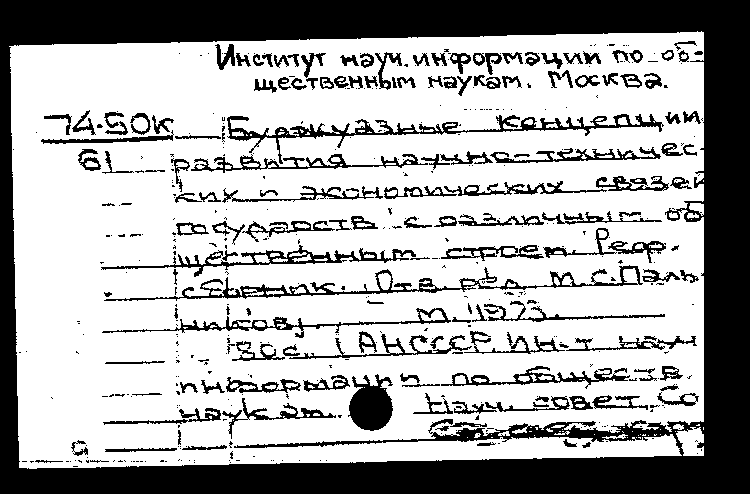 Институт науч. информации по об-
щественным наукам. Москва.
74-50К Буржуазные концепции
61 развития научно-техничес-
ких и экономических связей
государств с различным об
щественным строем. Реф.
сборник. (Отв. ред. М.С.Паль-
ников). М. 1973.
80с. (АНСССР. Ин-т науч
информации по обществ.
наукам. Науч. совет. Со